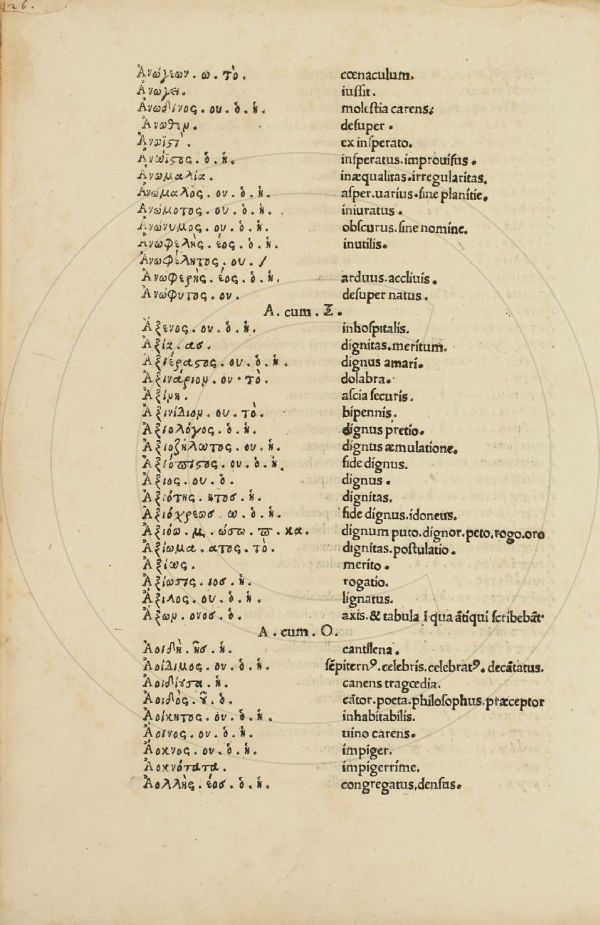 126.
Ἀνώγεων . ω . τὸ. cœnaculum.
Ἀνωγει. iussit.
Ἀνώδινος . ου . ὁ . ἡ. molestia carens.
Ἀνωθεν. desuper .
Ἀνωϊστὶ. ex insperato.
Ἀνώϊστος . ὁ . ἡ. insperatus.improuisus .
Ἀνωμαλία. inæqualitas.irregularitas.
Ἀνώμαλος . ου . ὁ . ἡ. asper.uarius.sine planitie.
Ἀνώμοτος . ου . ὁ . ἡ. iniuratus .
Ἀνώνυμος . ου . ὁ . ἡ. obscurus.sine nomine.
Ἀνωφελὴς . έος . ὁ . ἡ. inutilis.
Ἀνωφέλητος . ου . /
Ἀνωφερὴς . έος . ὁ . ἡ. arduus.accliuis .
Ἀνώφυτος . ου. desuper natus .
A . cum . Ξ .
Ἄξενος . ου . ὁ . ἡ. inhospitalis.
Ἀξία . ασ. dignitas.meritum.
Ἀξιέραστος . ου . ὁ . ἡ. dignus amari.
Ἀξινάριον . ου . τὸ. dolabra.
Ἀξίνη. ascia securis .
Ἀξινίδιον . ου . τὸ. bipennis.
Ἀξιολόγος . ὁ . ἡ. dignus pretio.
Ἀξιοζήλωτος . ου . ἡ. dignus æmulatione.
Ἀξιόπιστος . ου . ὁ . ἡ. fide dignus.
Ἄξιος . ου . ὁ. dignus .
Ἀξιότης . ητοσ . ἡ. dignitas.
Ἀξιόχρεωσ . ω . ὁ . ἡ. fide dignus.idoneus.
Ἀξιόω . μ . ώσω . π . κα. dignum puto.dignor.peto.rogo.oro
Ἀξίωμα . ατος . τὸ. dignitas.postulatio .
Ἀξίως. merito .
Ἀξίωσις . ιοσ . ἡ. rogatio.
Ἄξιλος . ου . ὁ . ἡ. lignatus.
Ἄξων . ονοσ . ὁ. axis.& tabula ĩ qua ãtiqui scribebãt.
A . cum . O.
Ἀοιδὴ . ῆσ . ἡ. cantilena .
Ἀοίδιμος . ου . ὁ . ἡ. sẽpiternꝰ.celebris.celebratꝰ.decãtatus.
Ἀοιδιοῦσα . ἡ. canens tragœdia.
Ἀοιδὸς . οῦ . ὁ. cãtor.poeta.philosophus.præceptor
Ἀοίκητος . ου . ὁ . ἡ. inhabitabilis.
Ἄοινος . ου . ὁ . ἡ. uino carens.
Ἄοκνος . ου . ὁ . ἡ. impiger.
Ἀοκνότατα . impigerrime.
Ἀολλὴς . έοσ . ὁ . ἡ. congregatus,densus.